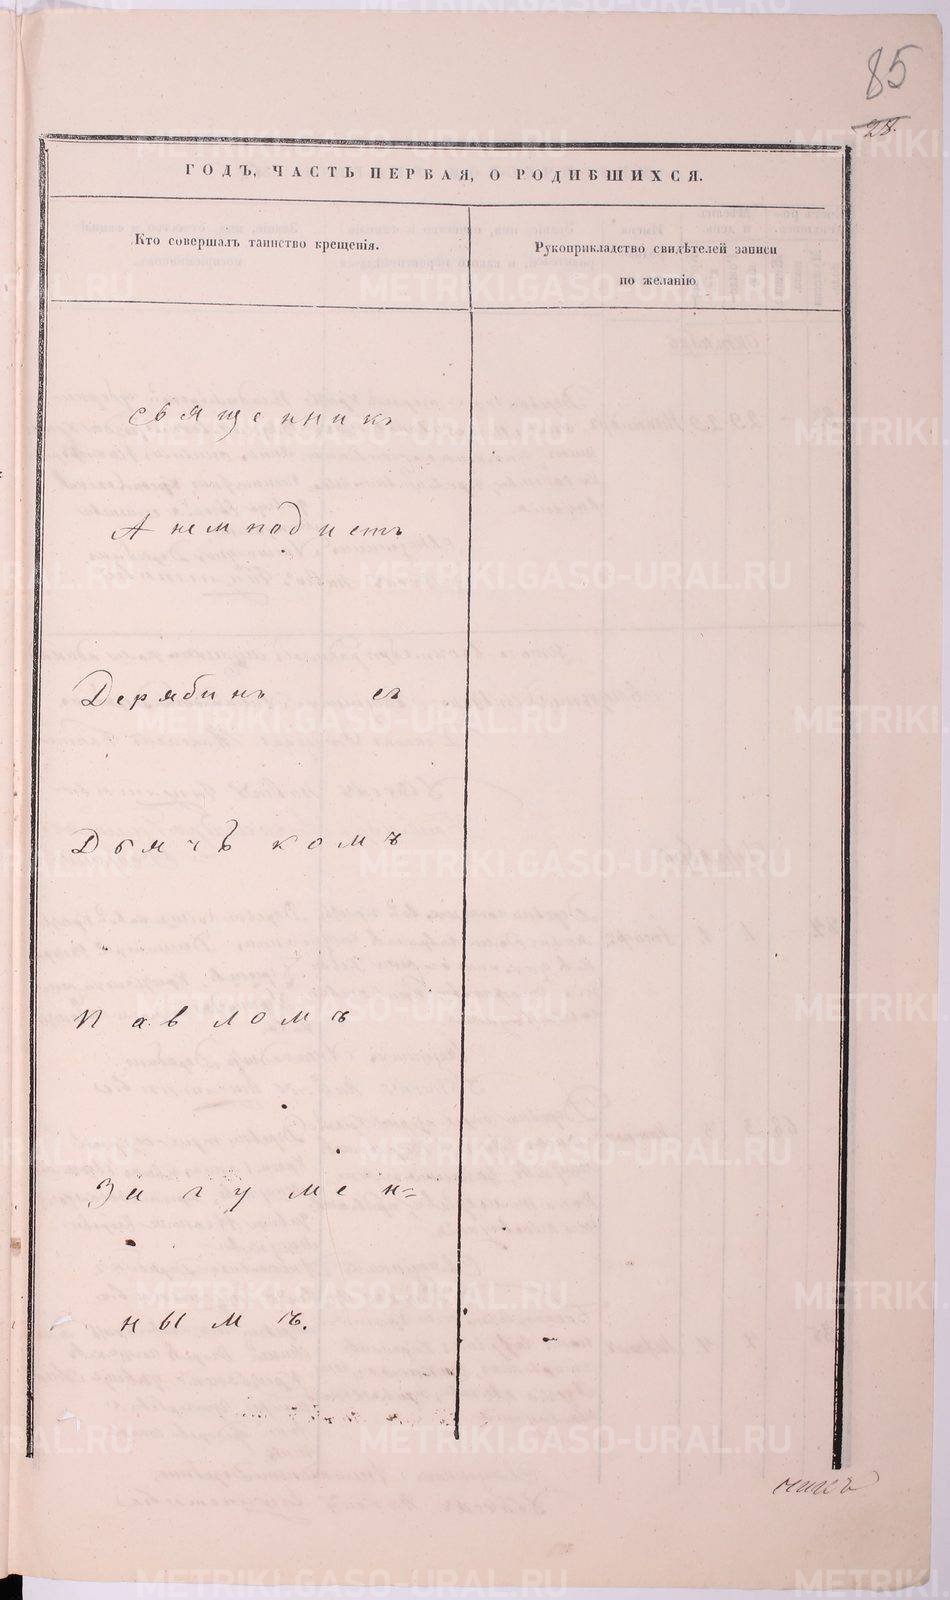 85
28.
ГОДЪ, ЧАСТЬ ПЕРВАЯ, О РОДИВШИХСЯ.
Кто совершалъ таинство крещенія.
Рукоприкладство свидѣтелей записи
по желанію
священникъ
Анемподистъ
Дерябинъ съ
Дьячъкомъ
Павломъ
Загумен=
нымъ.
METRIKI.GASO-URAL.RU